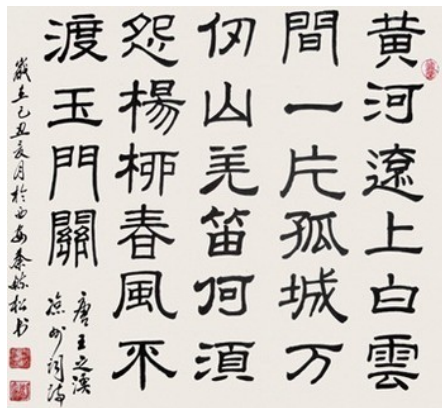 黄河遠上白雲
間一片孤城万
仞山羌笛何湏
怨楊栁春風不
渡玉門關
唐王之渙
涼州詞詩
歲在己丑夏月於西安秦毓松书